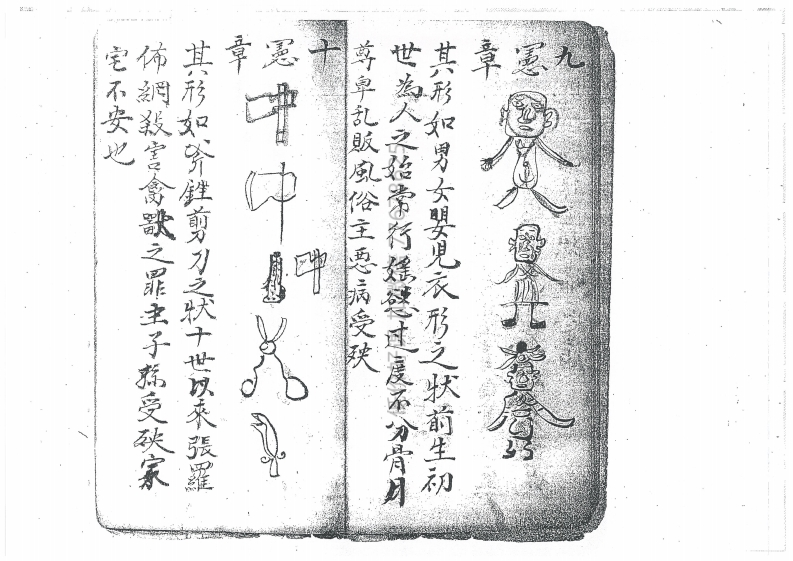 九
憲
章
其形如男女嬰児衣形之状前生初
世為人之始常行婬慾过度不分骨月
尊卑乱販風俗主惡病受殃
十
憲
章
其形如斧銼剪刀之状十世以來張羅
佈網殺害禽獸之罪主子孫受殃家
宅不安也